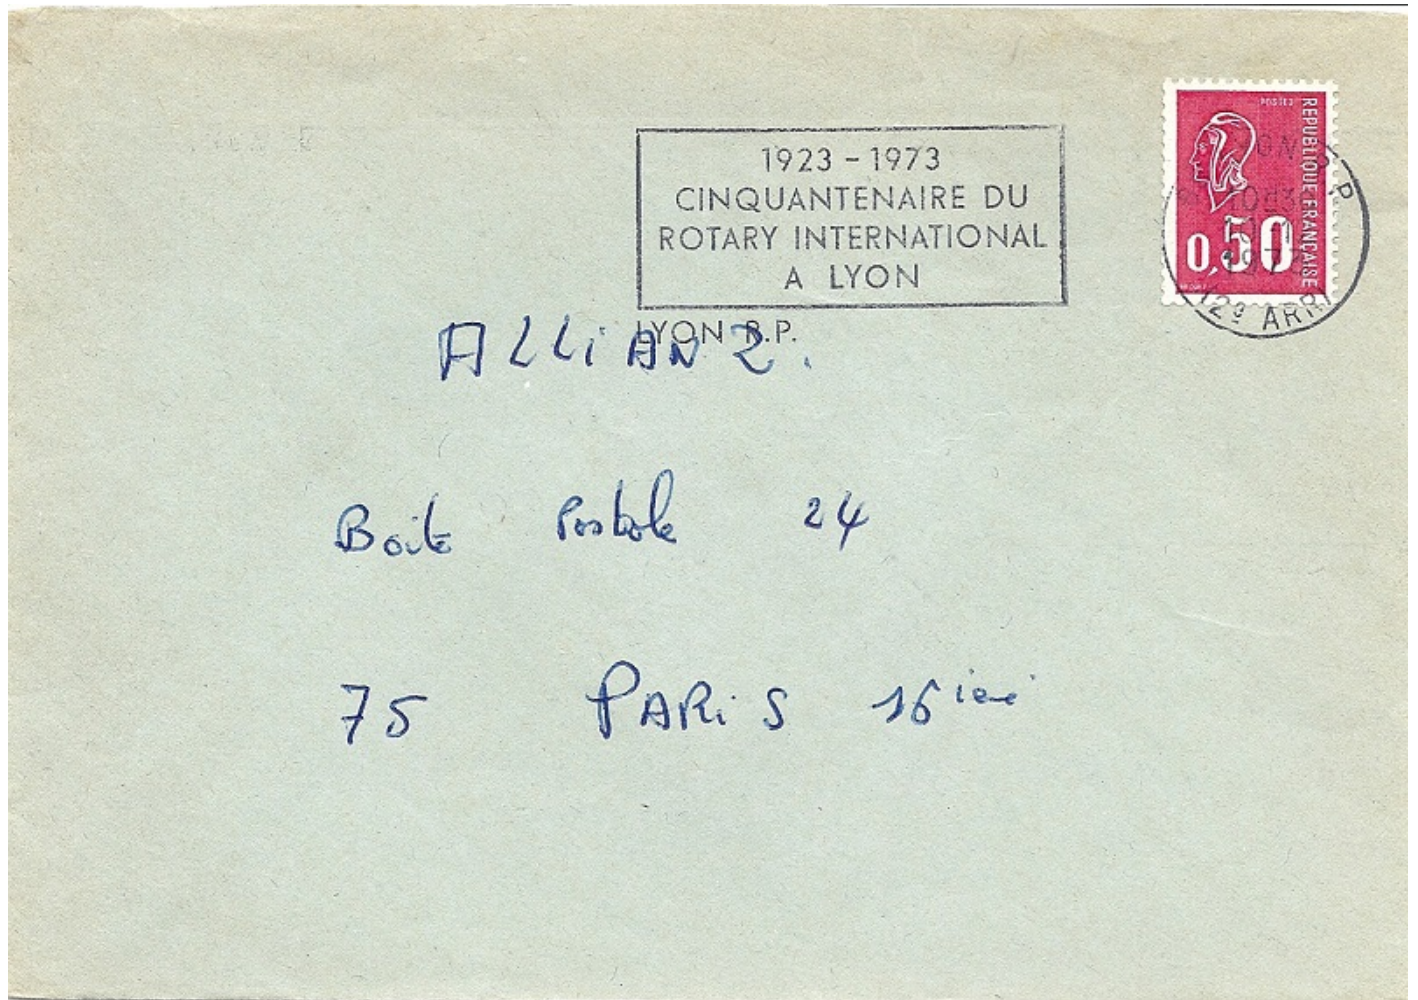 1923 - 1973
CINQUANTENAIRE DU
ROTARY INTERNATIONAL
A LYON
LYON R.P.
POSTES
REPUBLIQUE FRANÇAISE
0,50
1973
(2e ARRt
ALLiANZ.
Boite Postale 24
75 PARiS 16ième